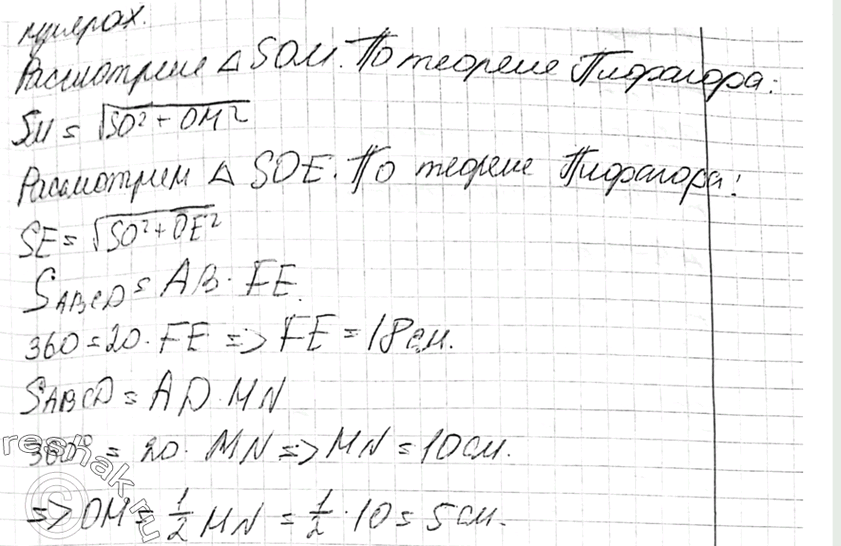 пирах.
Рассмотрим △ SOM. По теореме Пифагора:
SM = √SO² + OM²
Рассмотрим △ SOE. По теореме Пифагора:
SE = √SO² + OE²
S ABCD = AB · FE.
360 = 20 · FE => FE = 18 см.
S ABCD = AD · MN
360 = 20 · MN => MN = 10 см.
=> OM = 1/2 MN = 1/2 · 10 = 5 см.
reshak.ru